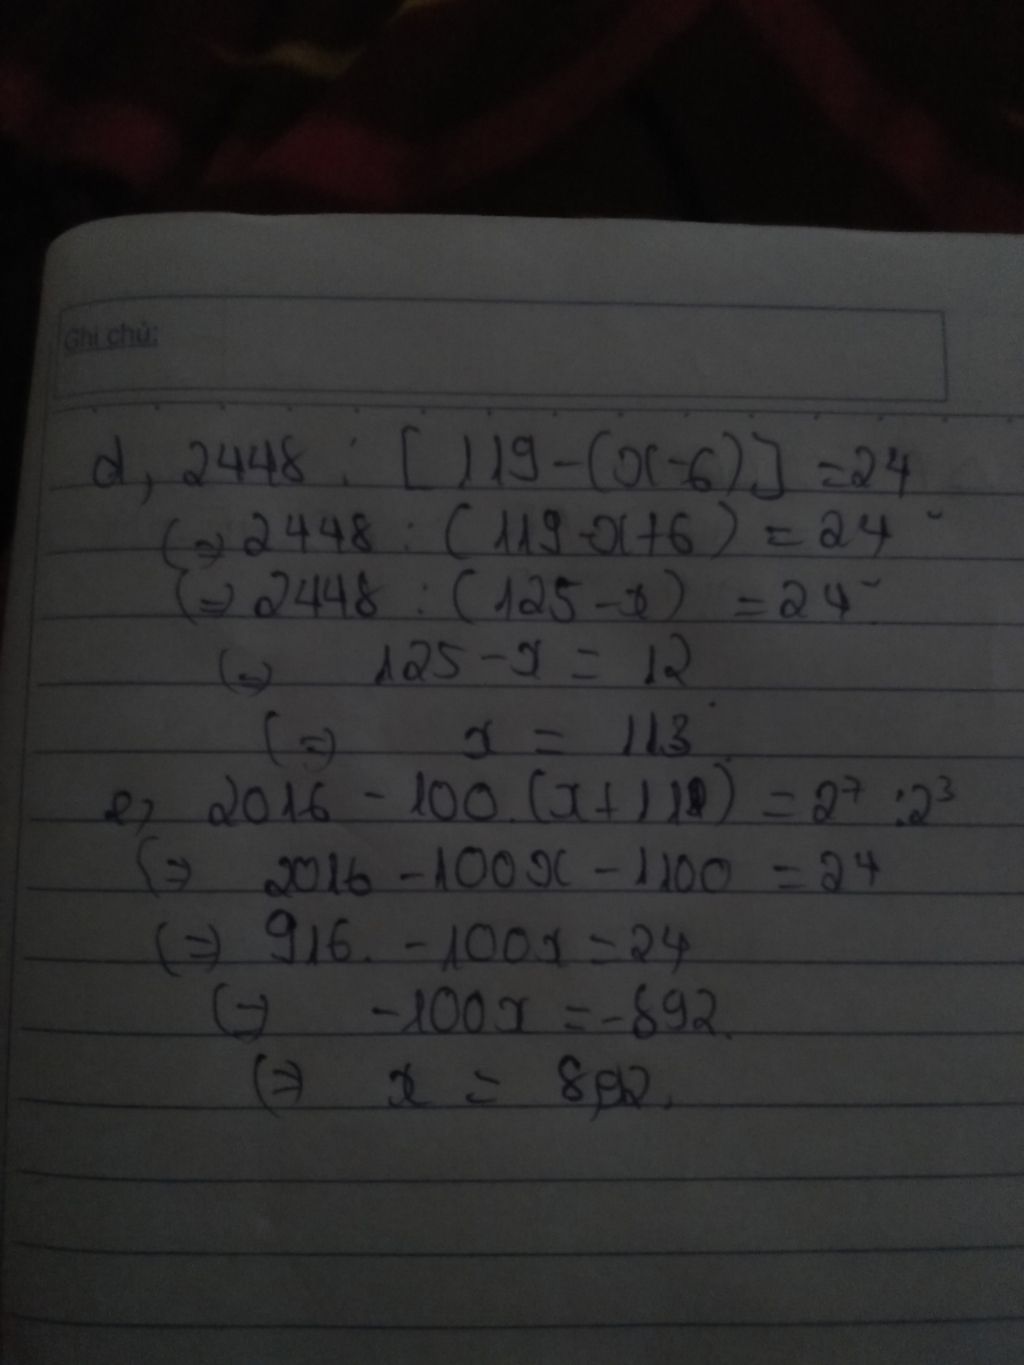 Ghi chú:
d, 2448 : [119-(x-6)] =24
(=) 2448 : (119-x+6) = 24
(=) 2448 : (125-x) = 24
(=) 125-x = 12
(=) x = 113
e, 2016 - 100.(x+11) = 2⁷ : 2³
(=) 2016 -100x - 1100 = 24
(=) 916 -100x = 24
(=) -100x = -892
(=) x = 8,92.